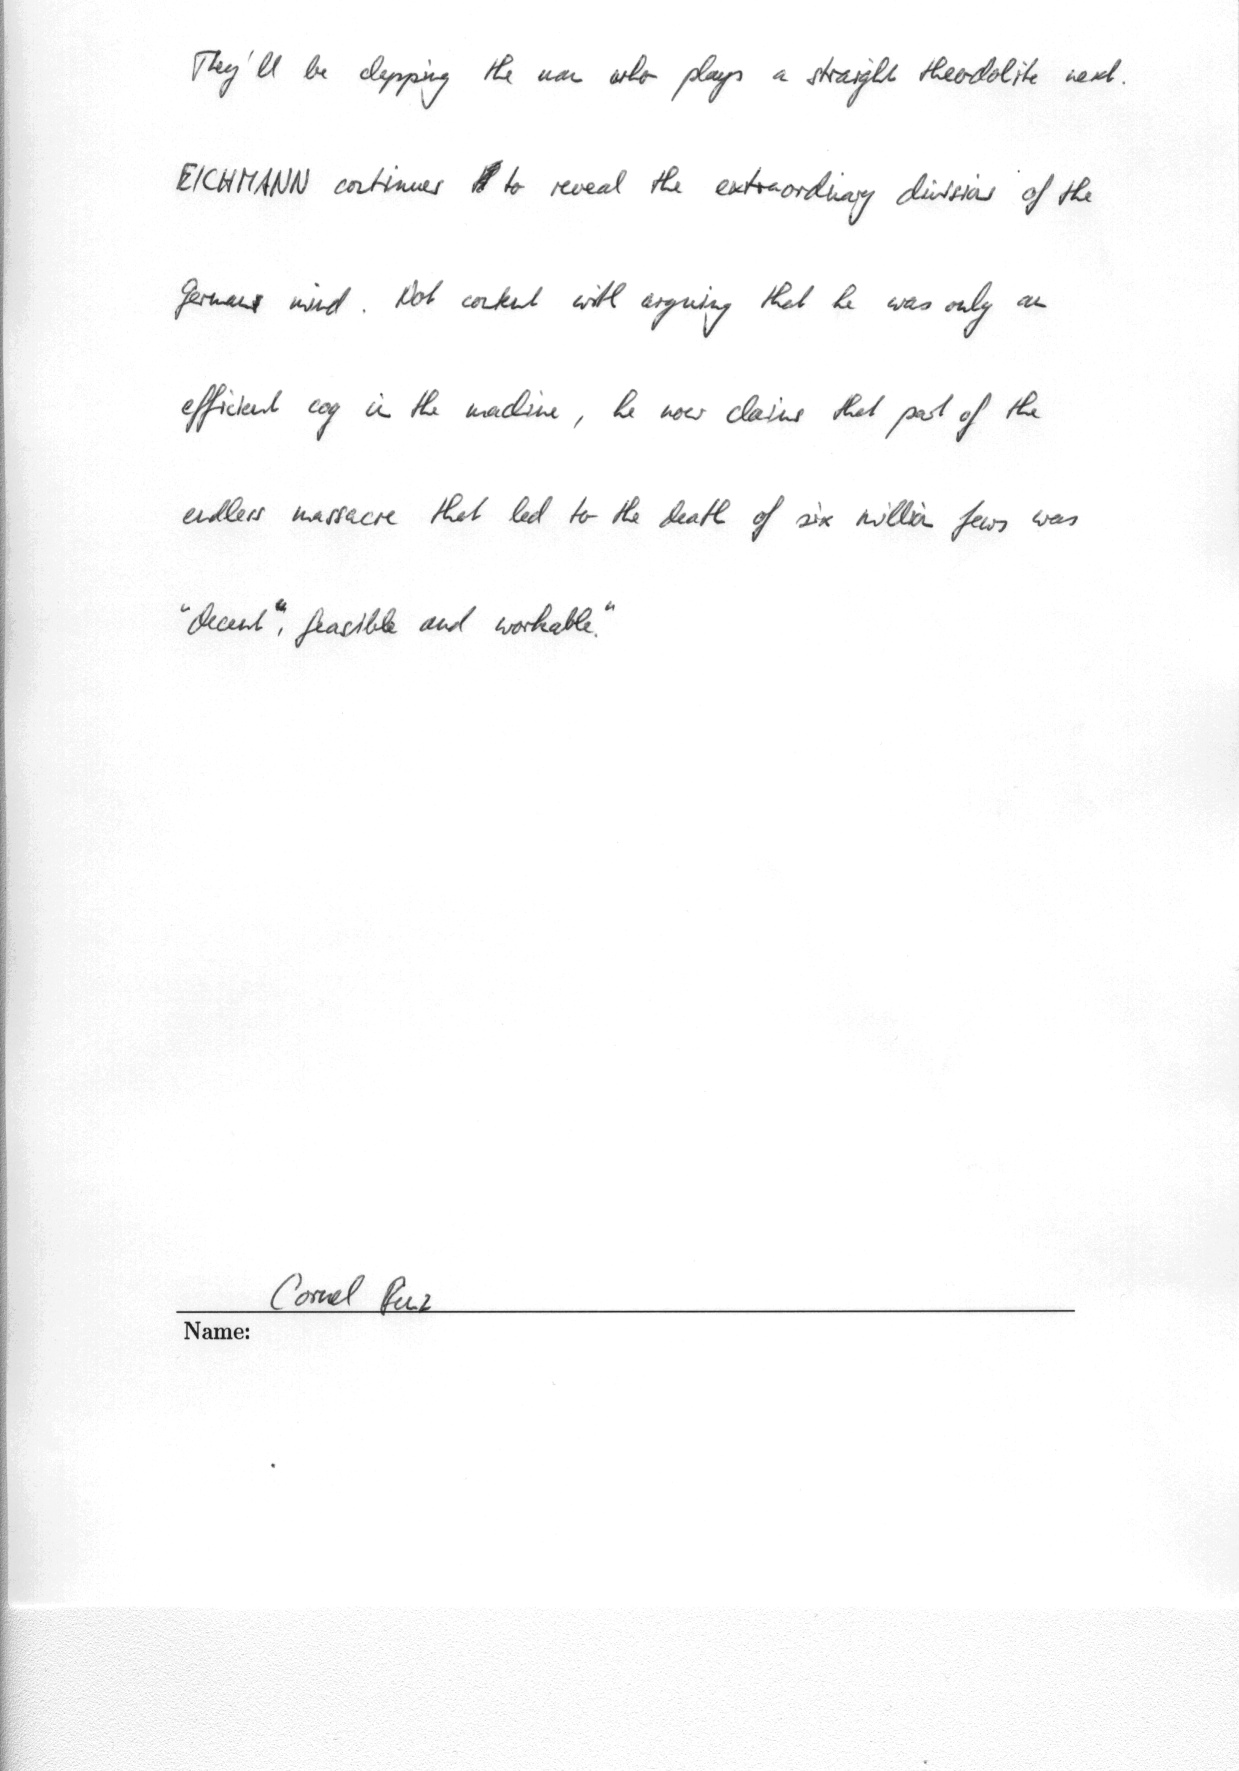 They'll be clapping the man who plays a straight theodolite next.
EICHMANN continues to reveal the extraordinary division of the
German mind. Not content with arguing that he was only an
efficient cog in the machine, he now claims that part of the
endless massacre that led to the death of six million Jews was
"decent", feasible and workable."
Cornel
Name: